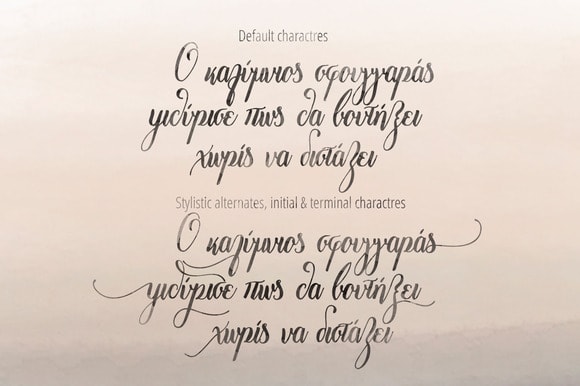 Default charactres
Ο καλύμνιος σφουγγαράς
ψιθύρισε πως θα βουτήξει
χωρίς να διστάζει
Stylistic alternates, initial & terminal charactres
Ο καλύμνιος σφουγγαράς
ψιθύρισε πως θα βουτήξει
χωρίς να διστάζει